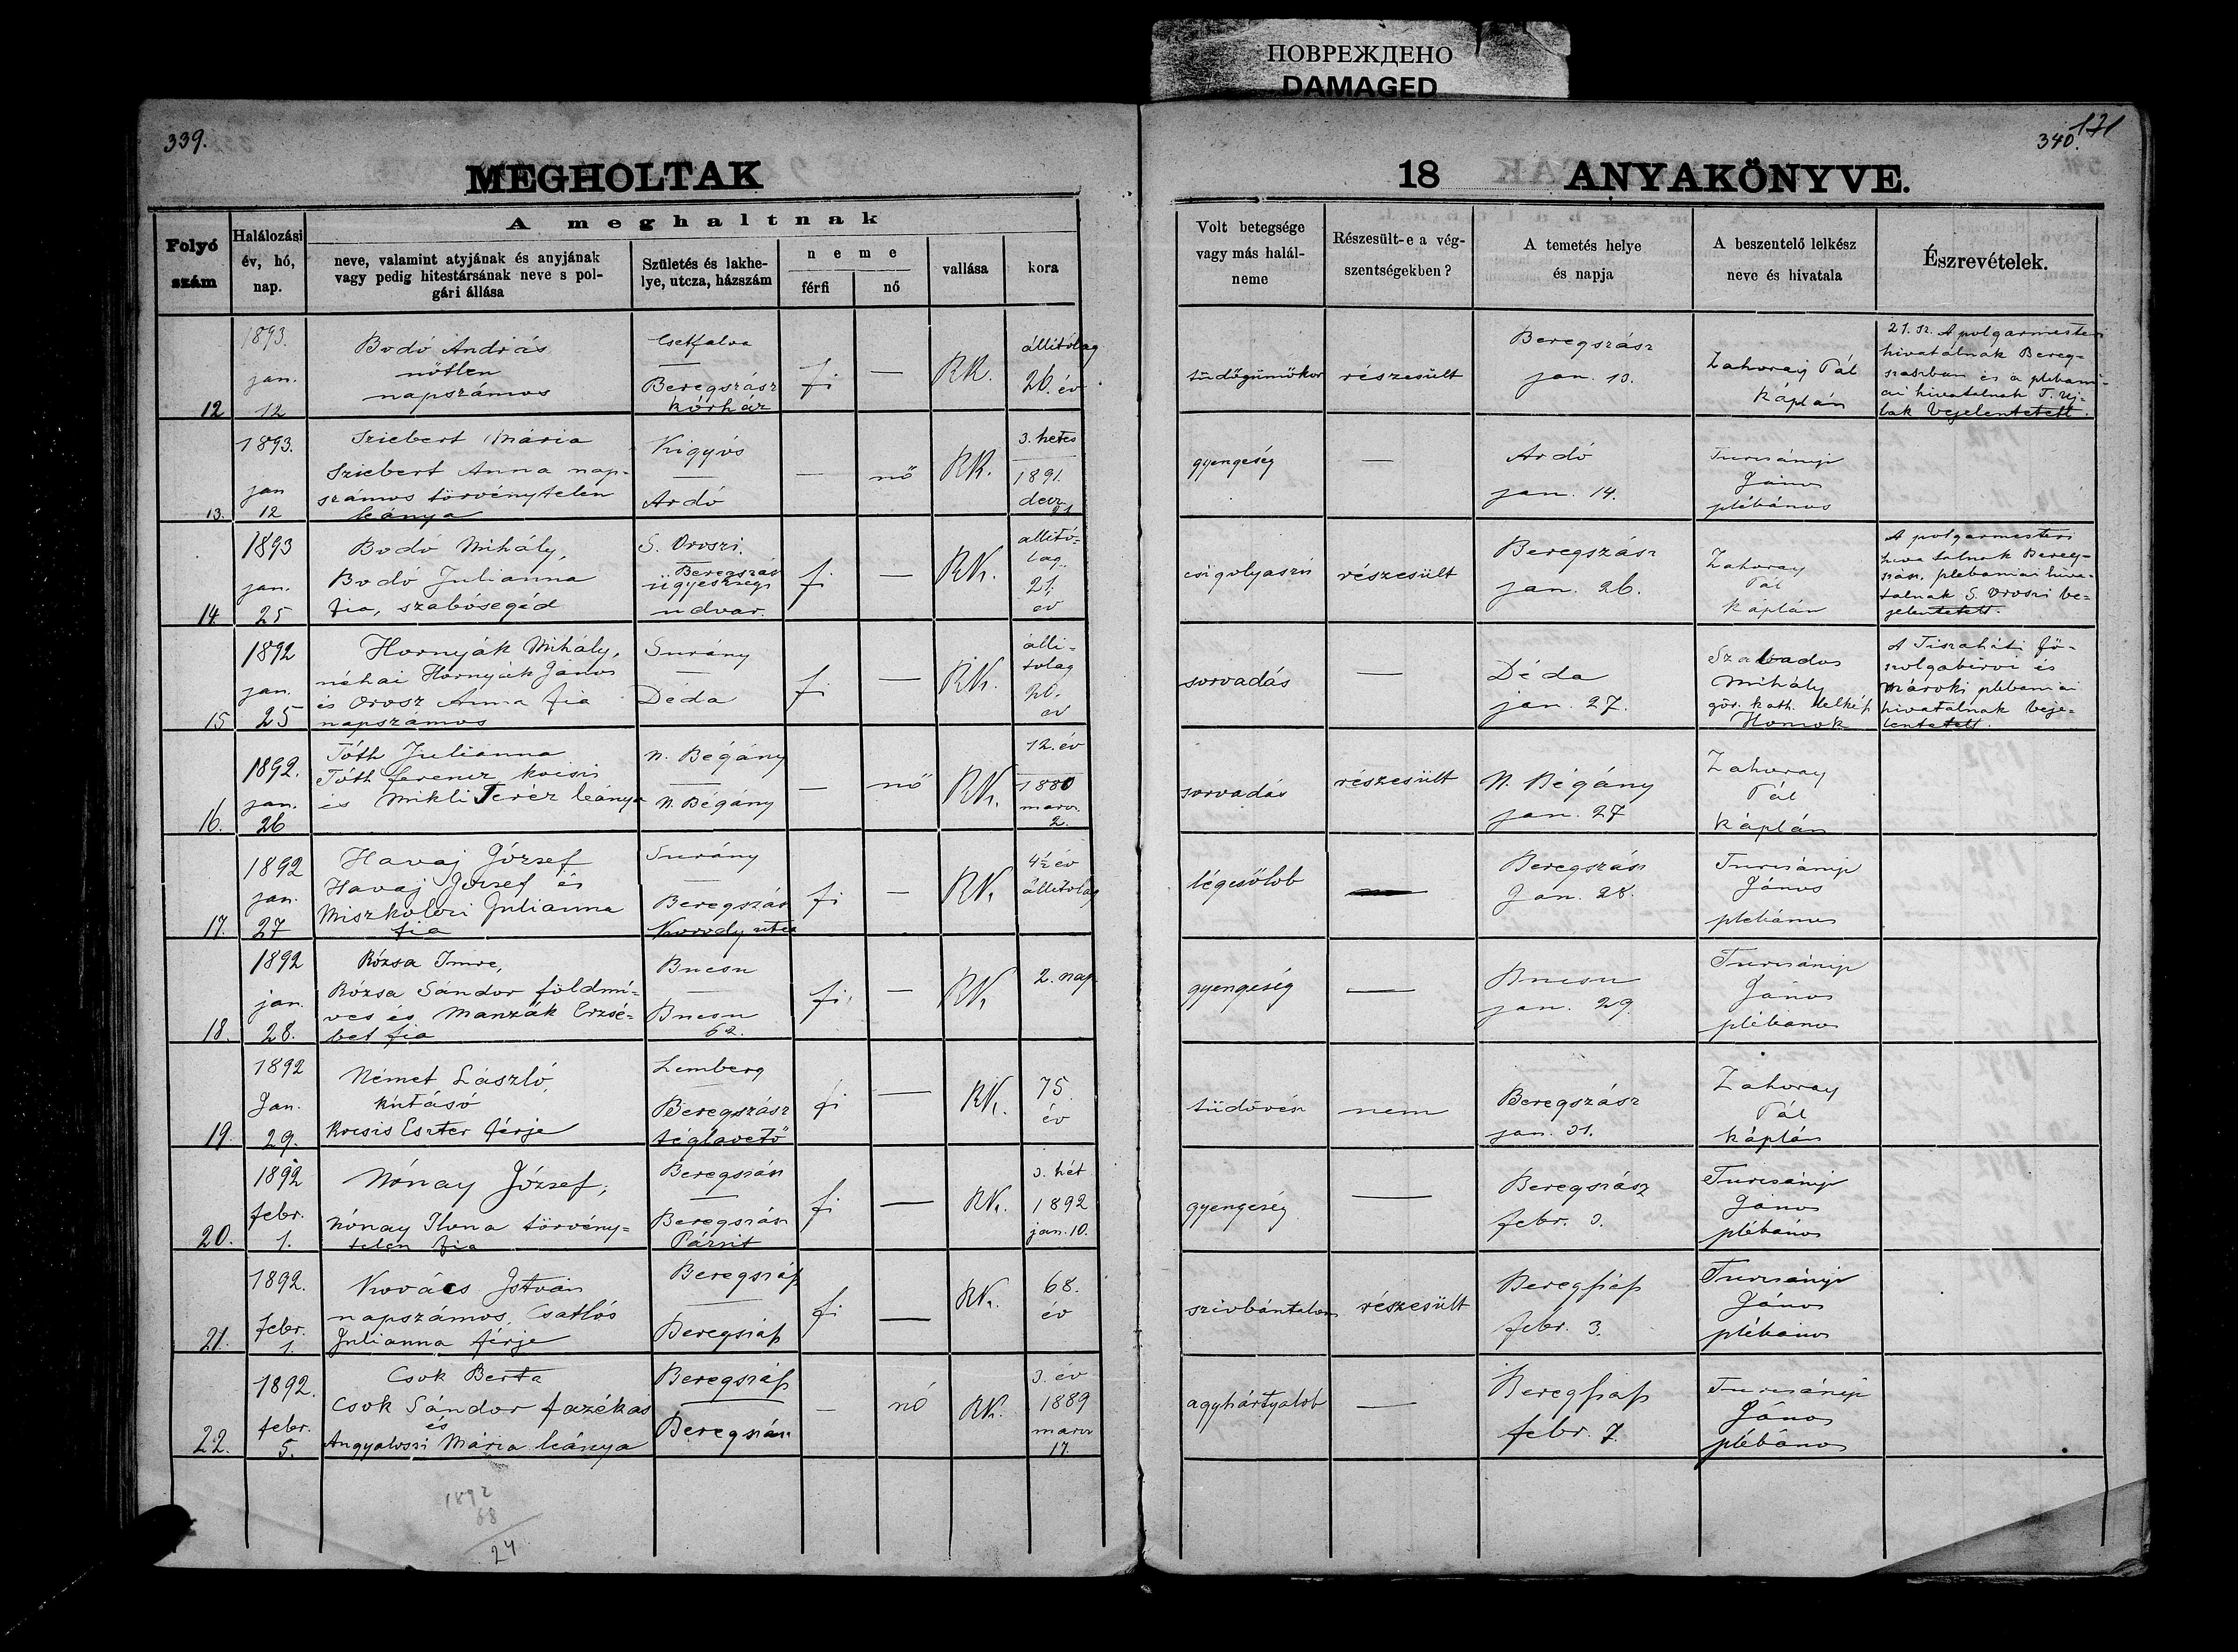 ПОВРЕЖДЕНО
DAMAGED
339.
MEGHOLTAK
Folyó szám
Halálozási év, hó, nap.
A meghaltnak
neve, valamint atyjának és anyjának
vagy pedig hitestársának neve s pol-
gári állása
Születés és lakhe-
lye, utcza, házszám
neme
férfi
nő
vallása
kora
12
1893.
jan.
12
Bodó András
nőtlen
napszámos
Csetfalva
—
Beregszász
kórház
fi
—
RK.
állitólag
26. év
13.
1893.
jan
12
Sziebert Mária
Sziebert Anna nap-
számos törvénytelen
leánya
Kigyós
—
Ardó
—
nő
RK.
3. hetes
1891.
decz
21
14
1893
jan.
25
Bodó Mihály,
Bodó Julianna
fia, szabósegéd
S. Oroszi.
Beregszász
ügyészségi
udvar.
fi
—
RK.
allitó-
lag
21.
év
15
1892
jan.
25
Hornyák Mihály,
néhai Hornyák János
és Orosz Anna fia
napszámos
Surány
—
Déda
fi
—
RK.
álli-
tolag
év
16.
1892.
jan.
26
Tóth Julianna
Tóth ferencz kocsis
és Mikli Teréz leánya
N. Bégány
—
N. Bégány
—
nő
RK.
12. év
1880
marcz
2.
17.
1892
jan.
27
Havaj József
Havaj József és
Miszkolczi Julianna
fia
Surány
—
Beregszász
Korody utca
fi
—
RK.
4½ év
állitolag
18.
1892
jan.
28.
Rózsa Imre,
Rózsa Sándor földmí-
ves és Manzák Erzsé-
bet fia
Bucsu
—
Bucsu
62.
fi.
—
RK.
2. nap
19.
1892
Jan.
29.
Német László,
kútásó
Kocsis Eszter férje
Lemberg
—
Beregszász
téglavető
fi
—
RK.
75.
év
20.
1892
febr.
1.
Nónay József,
Nónay Ilona törvény-
telen fia
Beregszász
—
Beregszász
fi
—
RK.
3. hét
1892
jan. 10.
21.
1892.
febr.
1.
Kovács István
napszámos, Csatlós
Julianna férje
Beregszász
—
Beregszász
fi
—
RK.
68.
év
22.
1892.
febr.
5.
Csok Berta
Csok Sándor fazékas
és
Angyalossi Mária leánya
Beregszász
—
Beregszász
—
nő
RK.
3. év
1889
marcz
17.
1892
68
24
340.
171
18 ANYAKÖNYVE.
Volt betegsége
vagy más halál-
neme
Részesült-e a vég-
szentségekben?
A temetés helye
és napja
A beszentelő lelkész
neve és hivatala
Észrevételek.
tüdőgümőkor
részesült
Beregszász
jan. 13.
Zahoray Pál
káplán
21. sz. A polgarmesteri
hivatalnak Bereg-
szaszban és a plebani-
ai hivatalnak T. Uj-
lak bejelentetett.
gyengeség
—
Ardó
jan. 14.
Turcsányi
János
plébános
csigolyaszú
részesült
Beregszász
jan. 26.
Zahoray
Pál
káplán
A polgarmesteri
hivatalnak Bereg-
szász, plebaniai hiva-
talnak S. Oroszi be-
jelentetett.
sorvadás
—
Déda
jan. 27.
Szabados
Mihály
gör. kath. lelkész
Homok
A Tiszaháti fő-
szolgabirói és
Mároki plébaniai
hivatalnak beje-
lentetett.
sorvadás
részesült
N. Bégány
jan. 27
Zahoray
Pál
káplán
légcsőlob
—
Beregszász
Jan. 28.
Turcsányi
János
plébános
gyengeség
—
Bucsu
jan. 29.
Turcsányi
János
plébános
tüdővész
nem
Beregszász
jan. 31.
Zahoray
Pál
káplán
gyengeség
—
Beregszász
febr. 3.
Turcsányi
János
plébános
szivbántalom
részesült
Beregszász
febr. 3.
Turcsányi
János
plébános
agyhártyalob
—
Beregszász
febr. 7.
Turcsányi
János
plébános